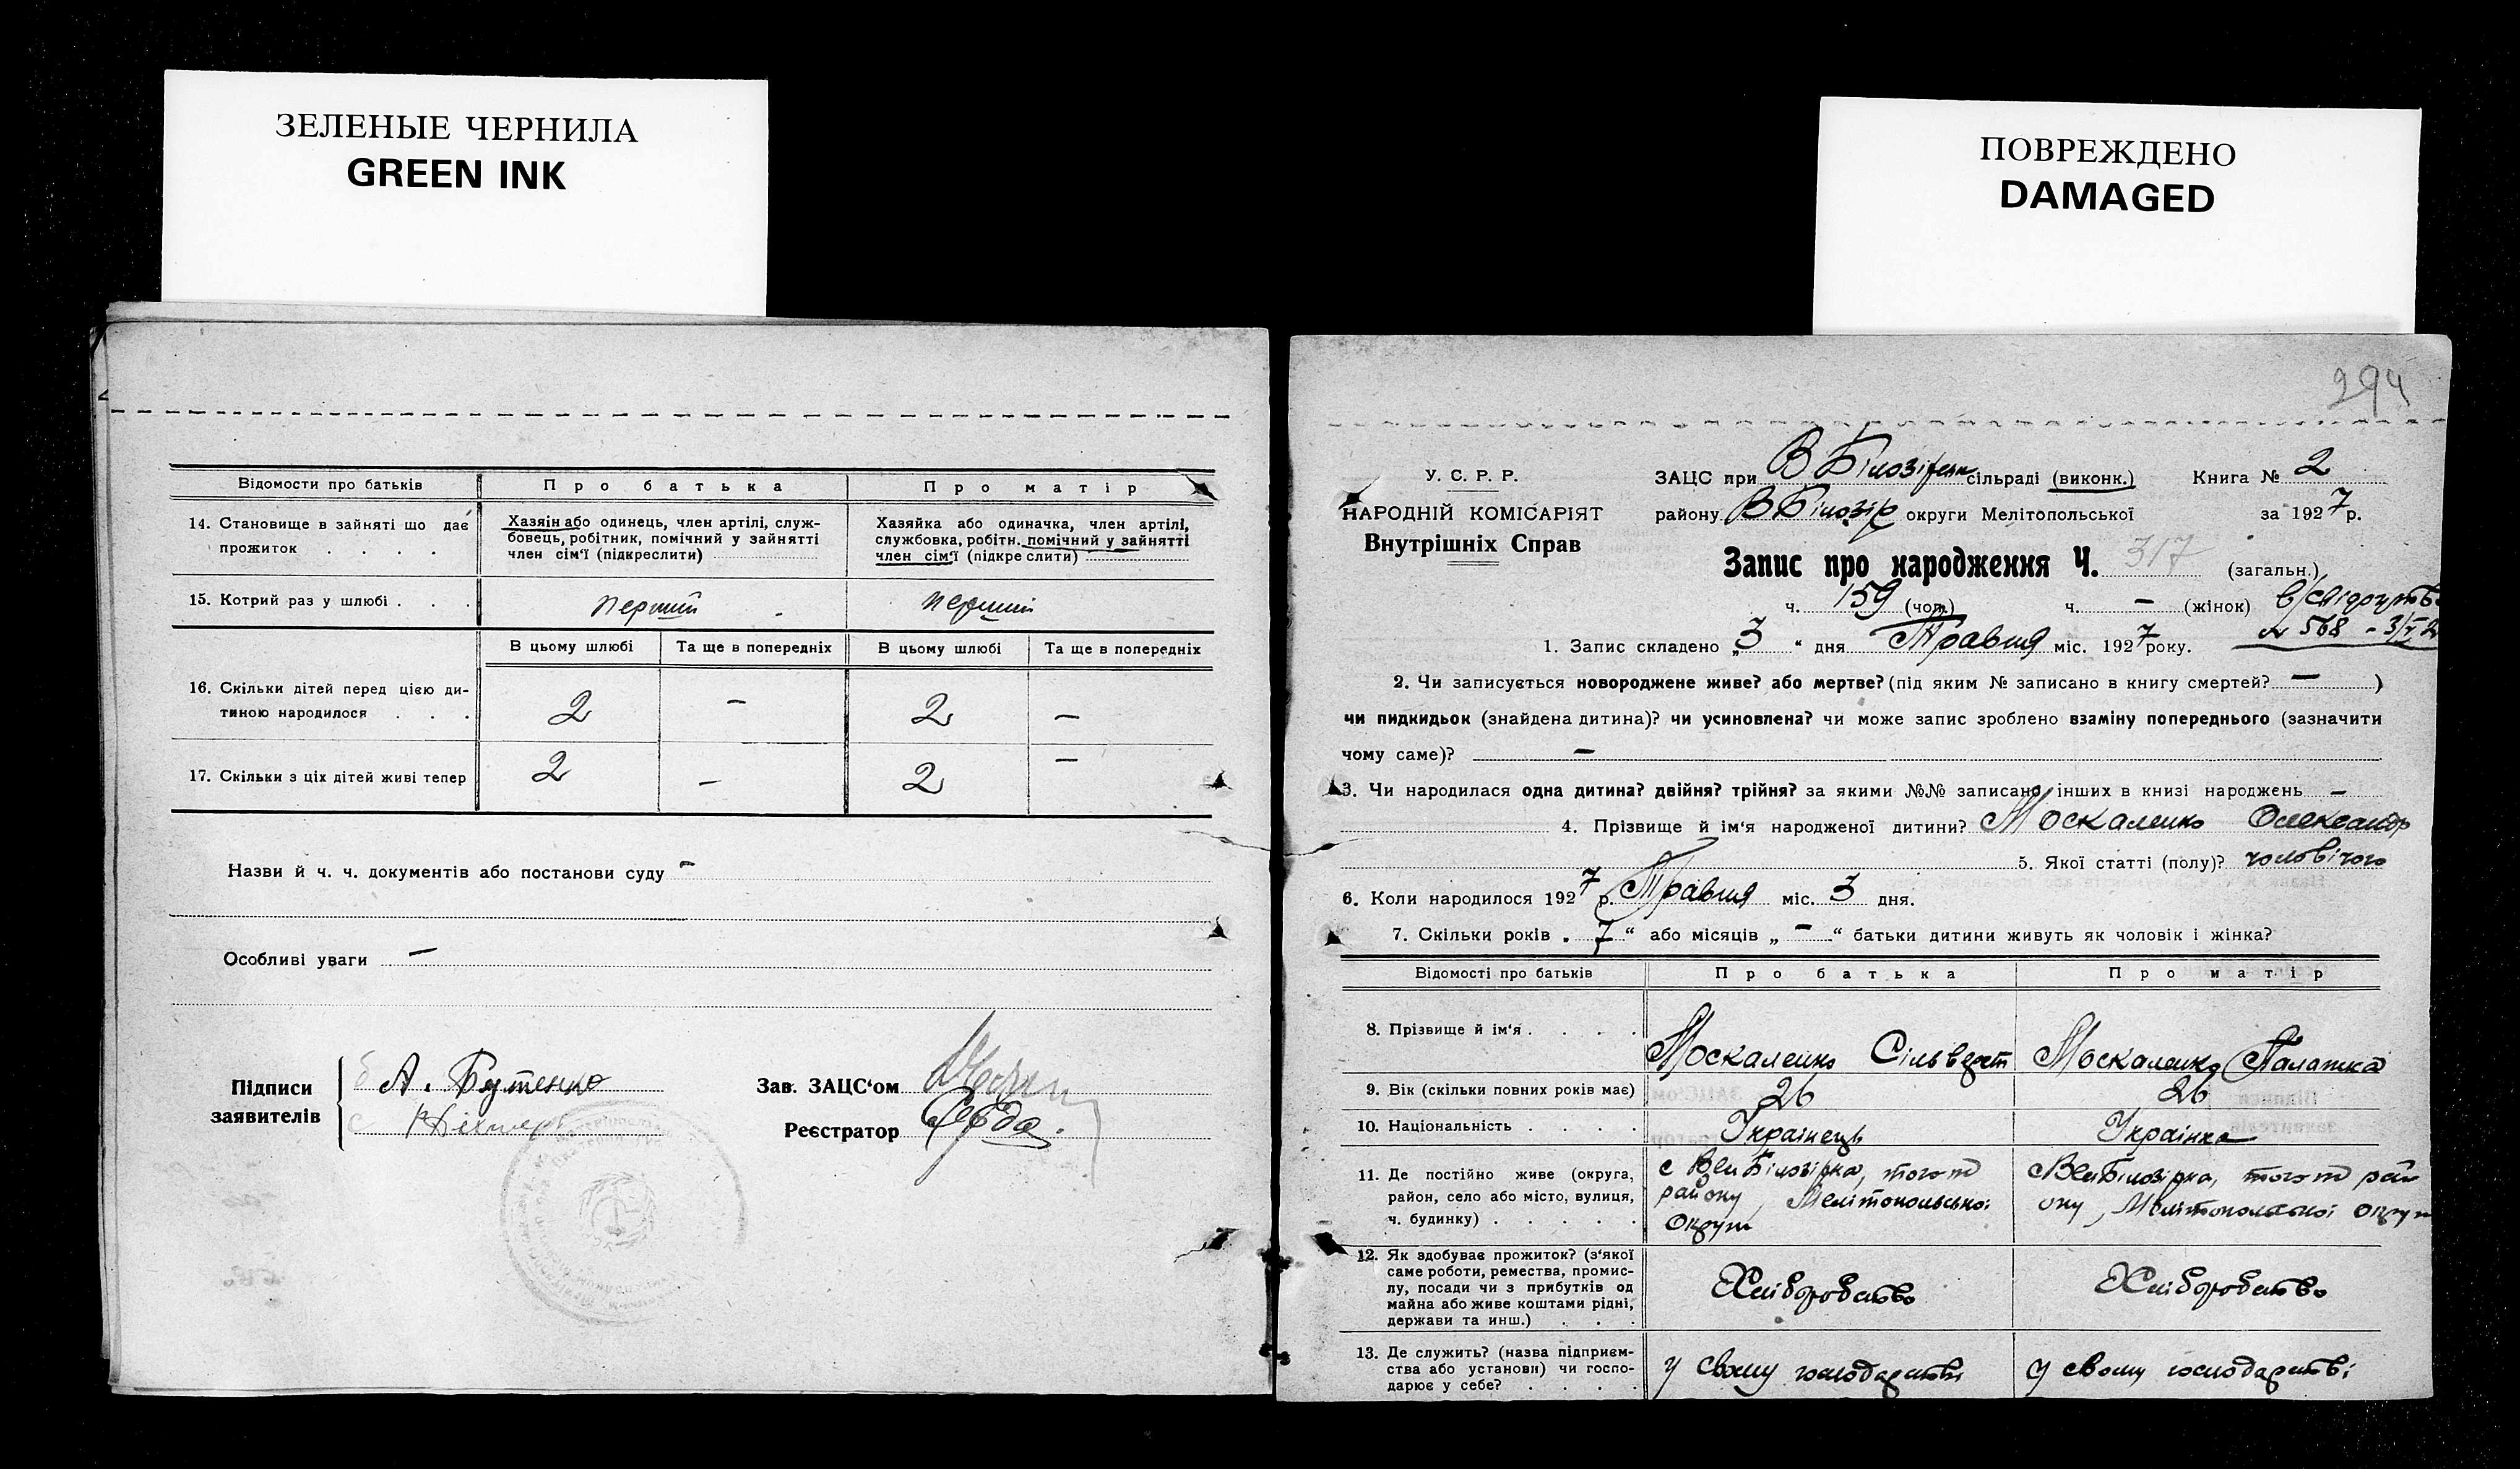 ЗЕЛЕНЫЕ ЧЕРНИЛА
GREEN INK
ПОВРЕЖДЕНО
DAMAGED
Відомости про батьків Про батька Про матір
14. Становище в зайняті що дає
прожиток . . . .
Хазяін або одинець, член артілі, служ-
бовець, робітник, помічний у зайнятті
член сім'ї (підкреслити)
Хазяйка або одиначка, член артілі,
службовка, робітн. помічний у зайнятті
член сім'ї (підкреслити)
15. Котрий раз у шлюбі . . . перший перший
В цьому шлюбі Та ще в попередніх В цьому шлюбі Та ще в попередніх
16. Скільки дітей перед цією ди-
тиною народилося . . . 2 – 2 –
17. Скільки з ціх дітей живі тепер 2 – 2 –
Назви й ч. ч. документів або постанови суду –
Особливі уваги –
Підписи
заявителів
А. Бутенко
Зав. ЗАЦС'ом
Реєстратор
294
У. С. Р. Р.
НАРОДНІЙ КОМІСАРІЯТ
Внутрішніх Справ
ЗАЦС при В Білозірськ сільраді (виконк.) Книга № 2
району В Білозір округи Мелітопольської за 1927 р.
Запис про народження Ч. 317 (загальн.)
ч. 159 (чол.) ч. – (жінок)
№ 568 - 3/V 2
1. Запис складено „3 “ дня Травня міс. 1927 року.
2. Чи записується новороджене живе? або мертве? (під яким № записано в книгу смертей? – )
чи пидкидьок (знайдена дитина)? чи усиновлена? чи може запис зроблено взаміну попереднього (зазначити
чому саме)? –
3. Чи народилася одна дитина? двійня? трійня? за якими №№ записано інших в книзі народжень –
4. Прізвище й ім'я народженої дитини? Москаленко Олександр
5. Якої статті (полу)? чоловічого
6. Коли народилося 1927 р. Травня міс. 3 дня.
7. Скільки років „ 7 “ або місяців „ – “ батьки дитини живуть як чоловік і жінка?
Відомості про батьків Про батька Про матір
8. Прізвище й ім'я . . . . Москаленко Сільвест Москаленко Палашка
9. Вік (скільки повних років має) 26 26
10. Національність . . . . Українець Українка
11. Де постійно живе (округа,
район, село або місто, вулиця,
ч. будинку) . . . . .
с Вел Білозірка, того ж
району, Мелітопольської
Округи
с Вел Білозірка, того ж рай
ону, Мелітопольської округи
12. Як здобуває прожиток? (з'якої
саме роботи, ремества, промис-
лу, посади чи з прибутків од
майна або живе коштами рідні,
держави та инш.) . . .
Хліборобство Хліборобство
13. Де служить? (назва підприєм-
ства або установи) чи госпо-
дарює у себе? . . . .
у свому господарстві у свому господарстві